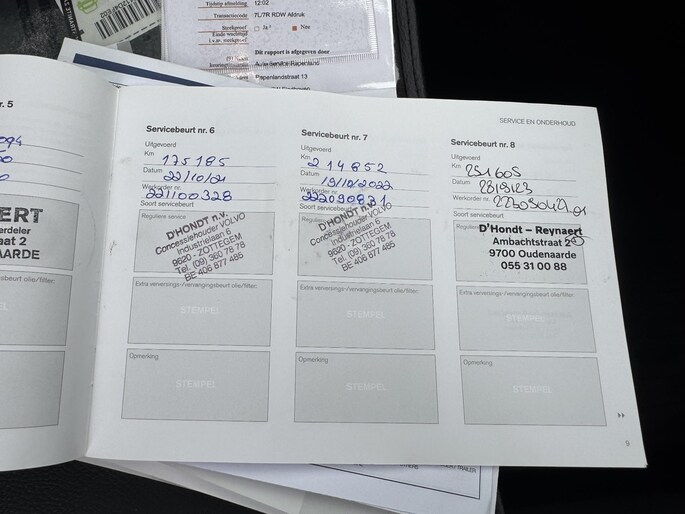 Tijdstip afmelding 12:02
Transmissiecode 7L/7R RDW Afdruk
Steekproef Ja Nee
Einde wachttijd
i.v.m. steekproef
Dit rapport is afgegeven door
Papenlandstraat 13
SERVICE EN ONDERHOUD
r. 5
ERT
erdeler
aat 2
AARDE
Servicebeurt nr. 6
Uitgevoerd
Km 175185
Datum 22/10/21
Werkorder nr. 221100328
Soort servicebeurt
Reguliere service
D'HONDT n.v.
Concessiehouder VOLVO
Industrielaan 6
9620 - ZOTTEGEM
Tel. (09) 360 78 78
BE 406 877 485
Extra verversings-/vervangingsbeurt olie/filter:
STEMPEL
Opmerking
STEMPEL
Servicebeurt nr. 7
Uitgevoerd
Km 214852
Datum 19/10/2022
Werkorder nr. 222090821
Soort servicebeurt
Reguliere service
D'HONDT n.v.
Concessiehouder VOLVO
Industrielaan 6
9620 - ZOTTEGEM
Tel. (09) 360 78 78
BE 406 877 485
Extra verversings-/vervangingsbeurt olie/filter:
STEMPEL
Opmerking
STEMPEL
Servicebeurt nr. 8
Uitgevoerd
Km 251605
Datum
Werkorder nr.
Soort servicebeurt
D'Hondt – Reynaert
Ambachtstraat 2
9700 Oudenaarde
055 31 00 88
Extra verversings-/vervangingsbeurt olie/filter:
STEMPEL
Opmerking
STEMPEL
9